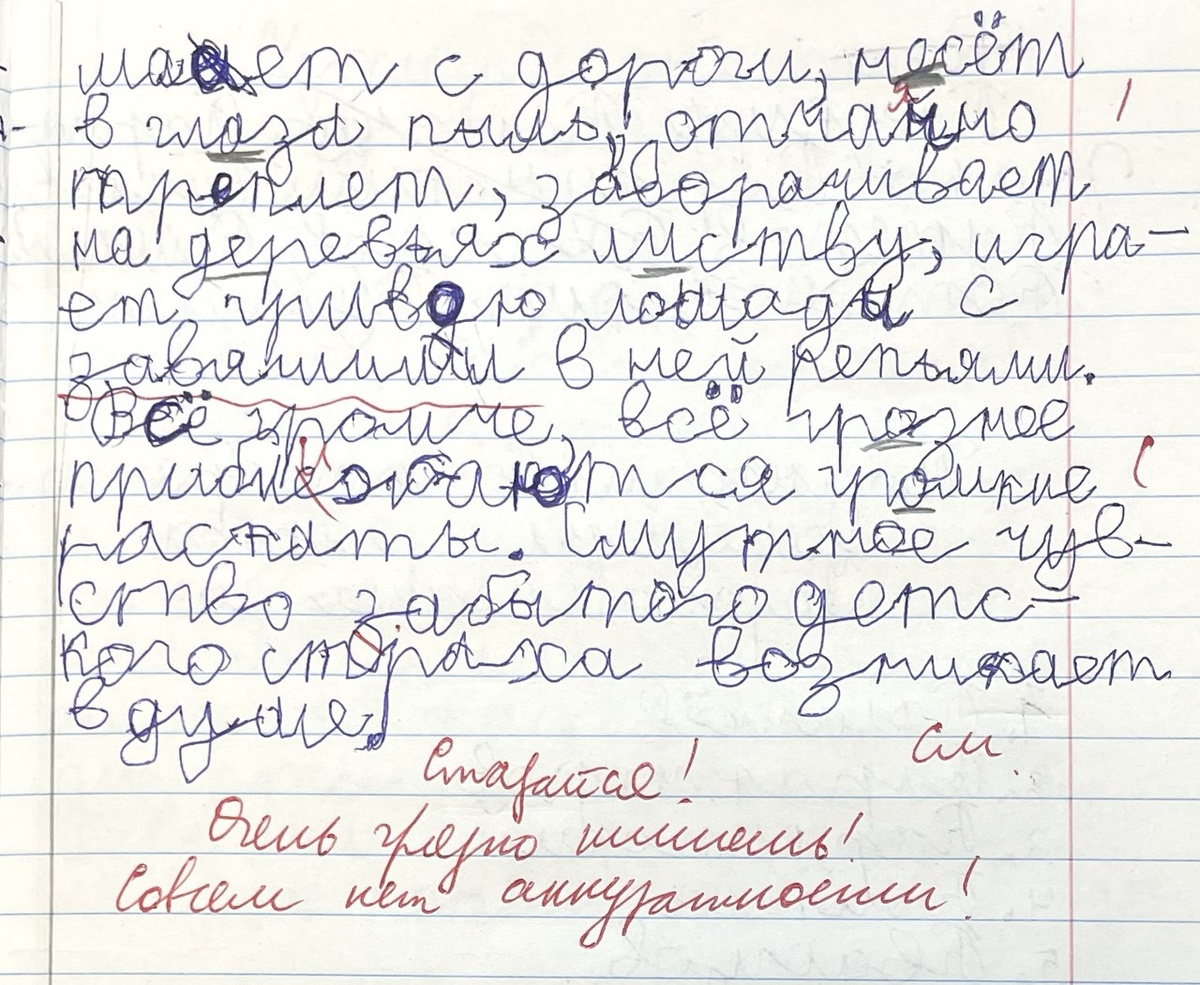 мает с дороги, несёт
в глаза пыль, отчаянно
треплет, заворачивает
на деревьях листву, игра-
ет гривою лошади с
завязшими в ней репьями.
Всё громче, всё грознее
приближаются громкие
раскаты. Смутное чув-
ство забытого детс-
кого страха возникает
в душе.
См.
Старайся!
Очень грязно пишешь!
Совсем нет аккуратности!